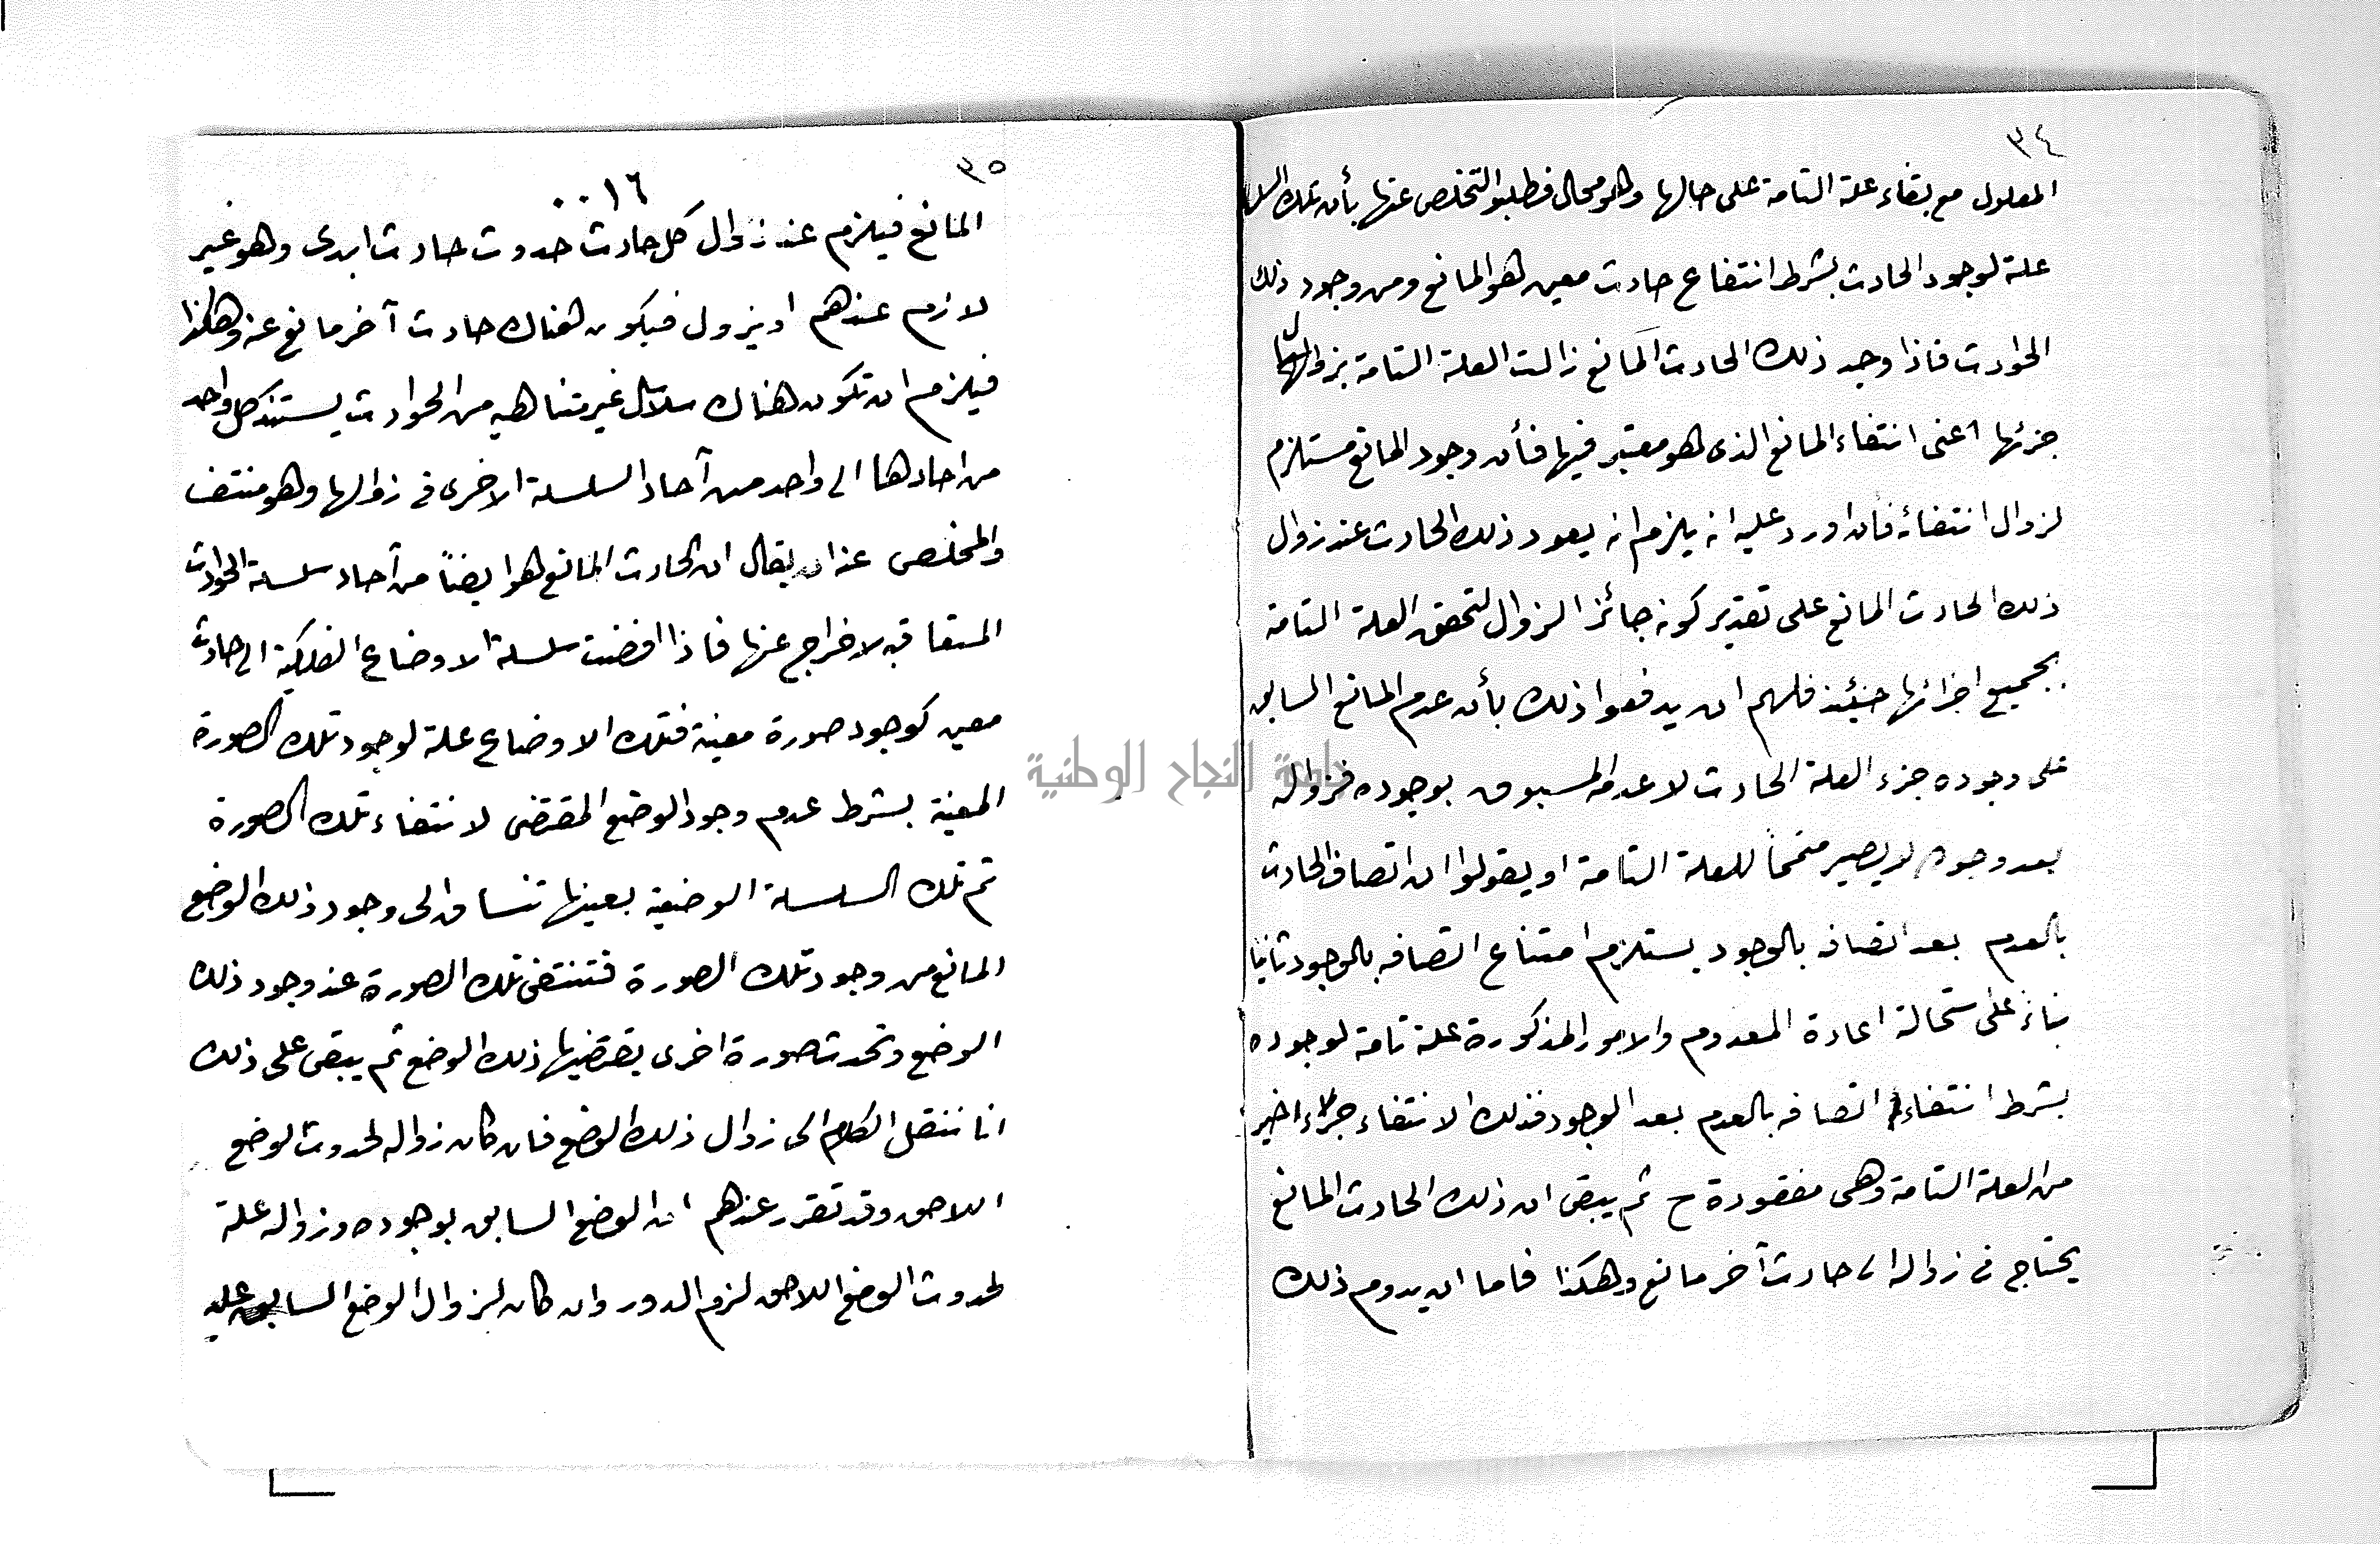 ٣٤
المعلول مع بقاء علة التامة على حالها وهو محال فطلبوا التخلص عنها بأن تلك السلسلة
علة لوجود الحادث بشرط انتفاء حادث معين هو المانع ومن وجود ذلك
الحوادث فاذا وجد ذلك الحادث المانع زالت العلة التامة بزوال
جزئها اعنى انتفاء المانع الذى هو معتبر فيها فأن وجود المانع مستلزم
لزوال انتفائه فان اورد عليه انه يلزم انه يعود ذلك الحادث عند زوال
ذلك الحادث المانع على تقدير كونه جائز الزوال لتحقق العلة التامة
بجميع اجزائها حينئذ فلهم ان يدفعوا ذلك بأن عدم المانع السابق
على وجوده جزء العلة الحادث لا عدمه المسبوق بوجوده فزواله
بعد وجوده لا يصير متمماً للعلة التامة او يقولوا ان اتصاف الحادث
بالعدم بعد اتصافه بالوجود يستلزم امتناع اتصافه بالوجود ثانيا
بناءً على ستحالة اعادة المعدوم والامور المذكورة علة تامة لوجوده
بشرط انتفاء اتصافه بالعدم بعد الوجود فذلك الانتفاء جزء اخير
من العلة التامة وهى مفقودة ح ثم يبقى ان ذلك الحادث المانع
يحتاج فى زواله الى حادث آخر مانع وهكذا فاما ان يدوم ذلك
٣٥
٠٠١٦
المانع فيلزم عند زوال كل حادث حدوث حادث ابدى وهو غير
لازم عندهم او يزول فيكون هناك حادث آخر مانع عنه وهكذا
فيلزم ان تكون هناك سلاسل غير متناهيه من الحوادث يستند كل واحد
من احادها الى واحد من آحاد السلسلة الاخرى فى زوالها وهو منتف
والمخلص عنه ان يقال ان الحادث المانع هو ايضاً من آحاد سلسلة الحوادث
المتعاقبه لا خراج عنها فاذا افضت سلسلة الاوضاع الفلكية الى حادث
معين كوجود صورة معينة فتلك الاوضاع علة لوجود تلك الصورة
المعينة بشرط عدم وجود الوضع المقتضى لانتفاء تلك الصورة
ثم تلك السلسلة الوضعية بعينها تنساق الى وجود ذلك الوضع
المانع من وجود تلك الصورة فتنتفى تلك الصورة عند وجود ذلك
الوضع وتحدث صورة اخرى يقتضيها ذلك الوضع ثم يبقى على ذلك
انا ننقل الكلام الى زوال ذلك الوضع فان كان زواله لحدوث الوضع
اللاحق وقد تقرر عندهم ان الوضع السابق بوجوده وزواله علة
لحدوث الوضع اللاحق لزم الدور وان كان لزوال الوضع السابق عليه
جامعة النجاح الوطنية